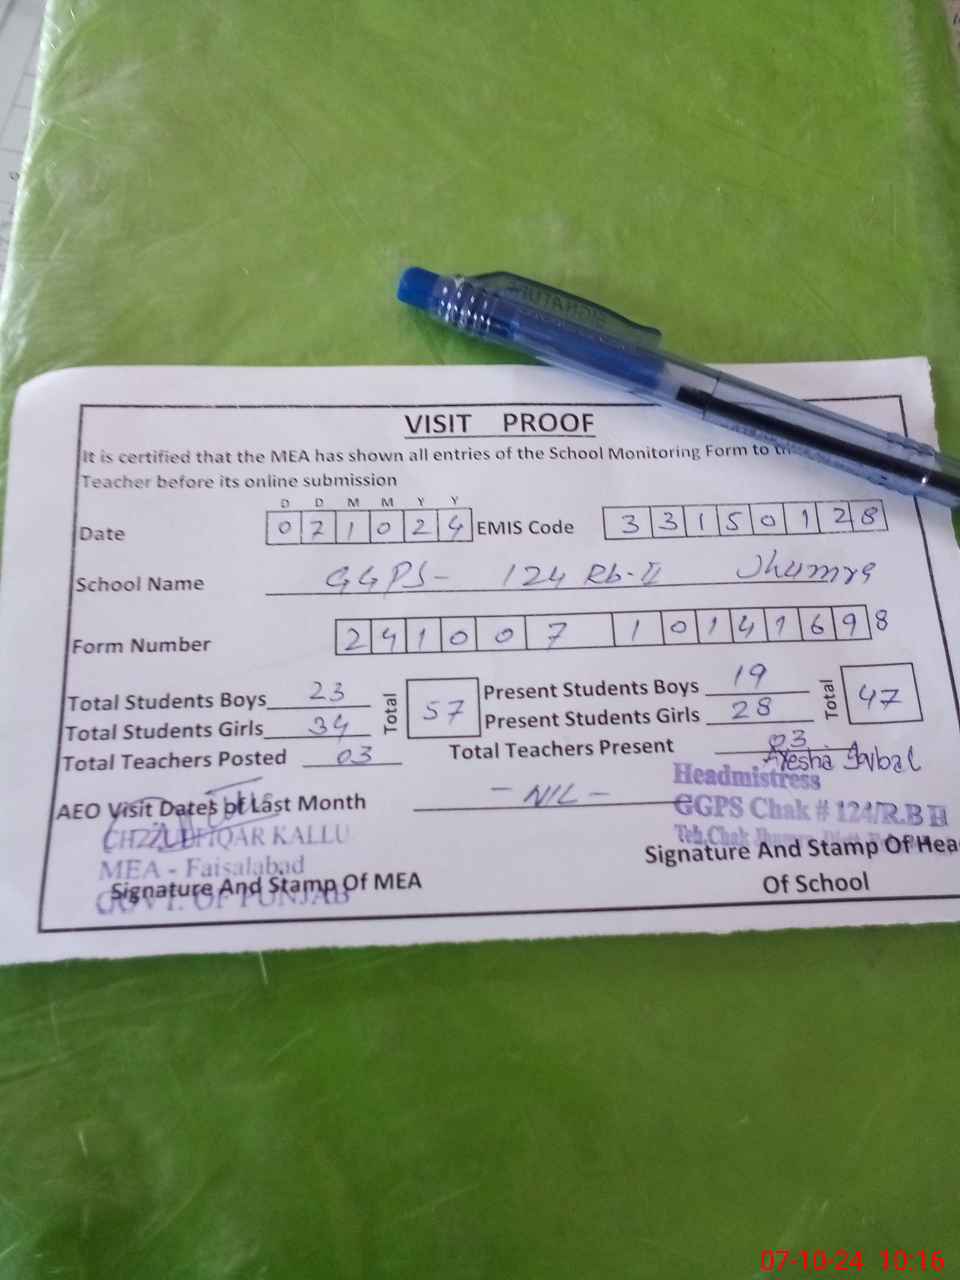 VISIT PROOF
It is certified that the MEA has shown all entries of the School Monitoring Form to
Teacher before its online submission
D D M M Y Y
Date 0 7 1 0 2 4 EMIS Code 3 3 1 5 0 1 2 8
School Name GGPS- 124 Rb-II Jhumra
Form Number 2 4 1 0 0 7 1 0 1 4 1 6 9 8
Total Students Boys 23 Total 57 Present Students Boys 19 Total 47
Total Students Girls 34 Present Students Girls 28
Total Teachers Posted 03 Total Teachers Present 03
Ayesha Iqbal
Headmistress
AEO Visit Dates of Last Month - NIL -
GGPS Chak # 124/R.B II
CH ZULFIQAR KALLU
Teh. Chak
MEA - Faisalabad
Signature And Stamp Of Hea
Signature And Stamp Of MEA
Of School
GOVT. OF PUNJAB
07-10-24 10:16